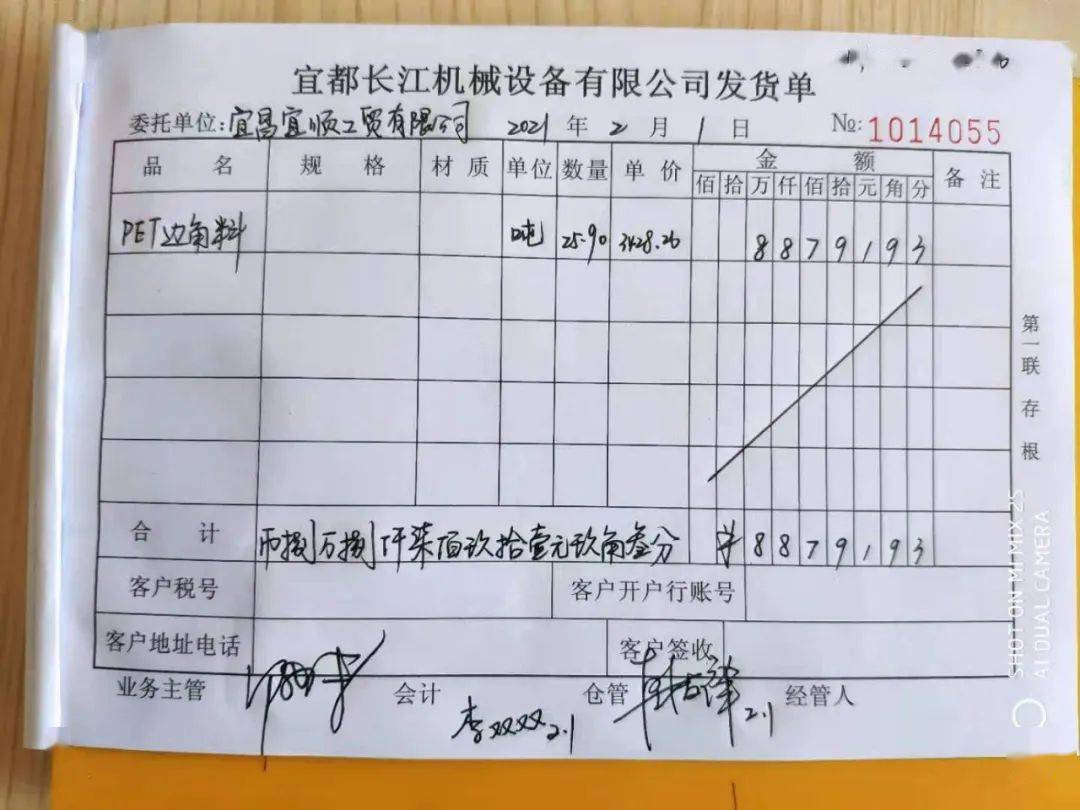 宜都长江机械设备有限公司发货单
委托单位:宜昌宜顺工贸有限公司 2021 年 2 月 1 日 №:1014055
品 名 规 格 材 质 单位 数量 单 价 金 额 备 注
佰 拾 万 仟 佰 拾 元 角 分
PET边角料 吨 25.90 3428.26 8 8 7 9 1 9 3
合 计 币捌万捌仟柒佰玖拾壹元玖角叁分 ¥ 8 8 7 9 1 9 3
客户税号 客户开户行账号
客户地址电话 客户签收
业务主管 会计 李双双2.1 仓管 2.1 经管人
第一联存根
SHOT ON MI MIX 2S
AI DUAL CAMERA